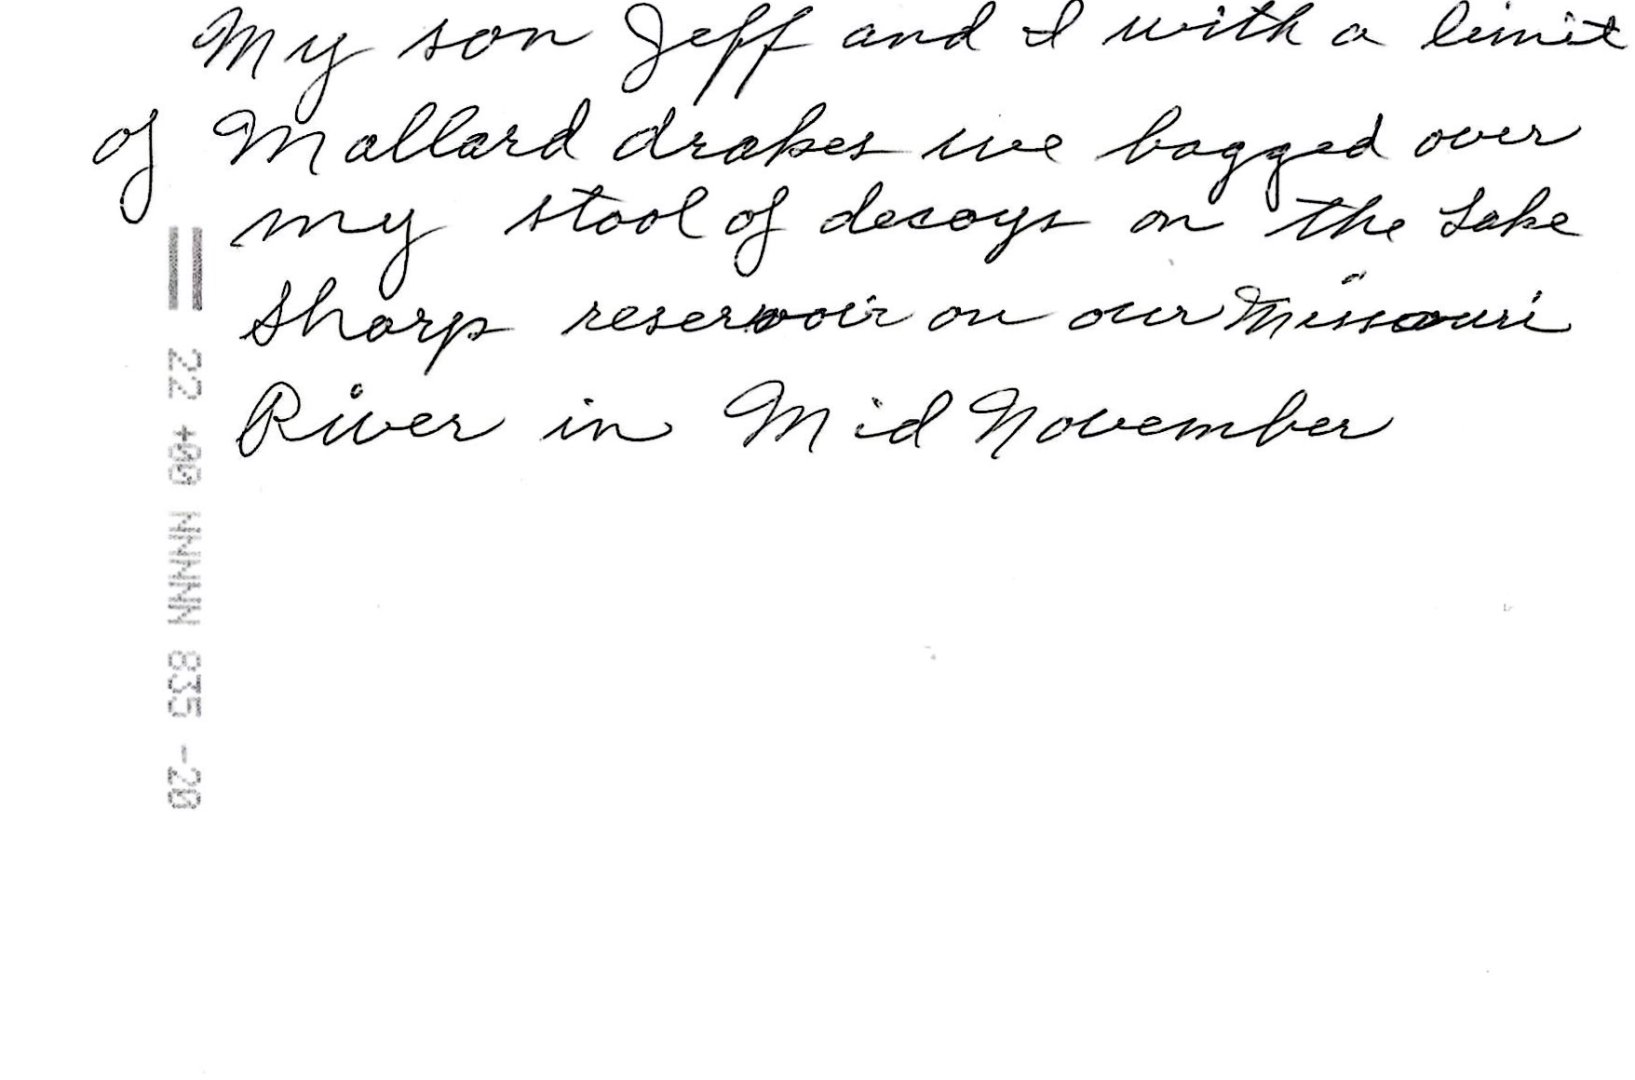 My son Jeff and I with a limit
of Mallard drakes we bagged over
my stool of decoys on the Lake
Sharp reservoir on our Missouri
River in Mid November
22 +00 NNNNN 835 -20